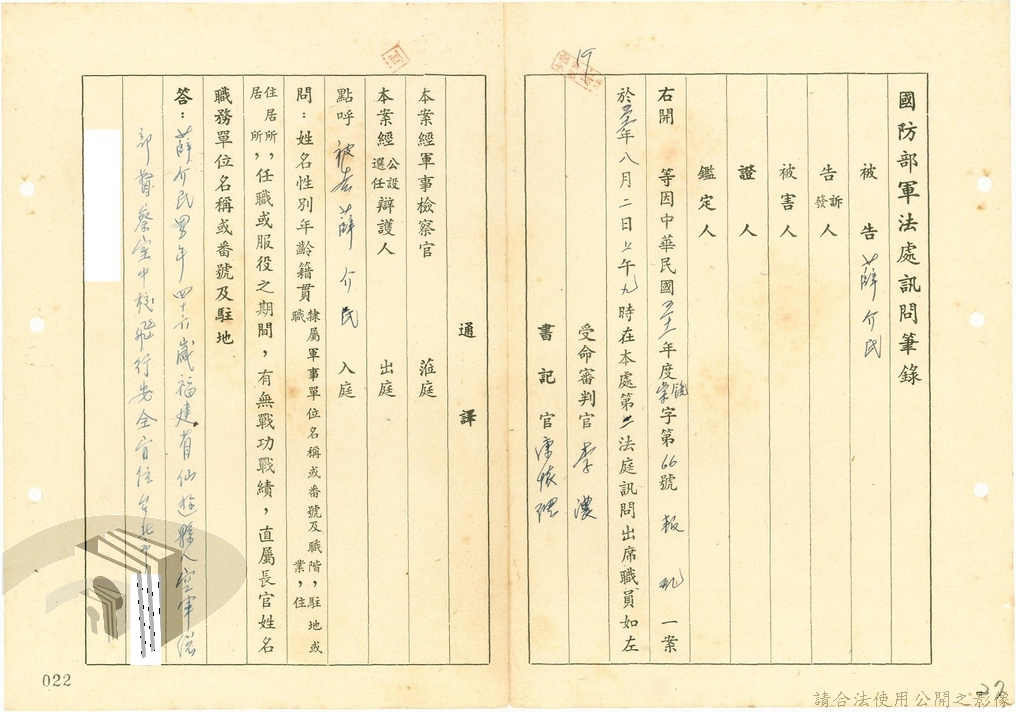 國防部軍法處訊問筆錄
被告 薛介民
告訴發人
被害人
證人
鑑定人
右開 等因中華民國五十一年度 字第66號 叛亂 一案
於五十一年八月二日上午九時在本處第二法庭訊問出席職員如左
受命審判官 李濃
書記官
通譯
本案經軍事檢察官 蒞庭
本案經公設選任辯護人 出庭
點呼 被告 薛介民 入庭
問：姓名性別年齡籍貫隸屬軍事單位名稱或番號及職階，駐地或職業，住
居所，住居所，任職或服役之期間，有無戰功戰績，直屬長官姓名
職務單位名稱或番號及駐地
答：薛介民男年四十六歲福建省仙遊縣人空軍總
部督察室中校飛行安全官住台北市
022
22
19
請合法使用公開之影像